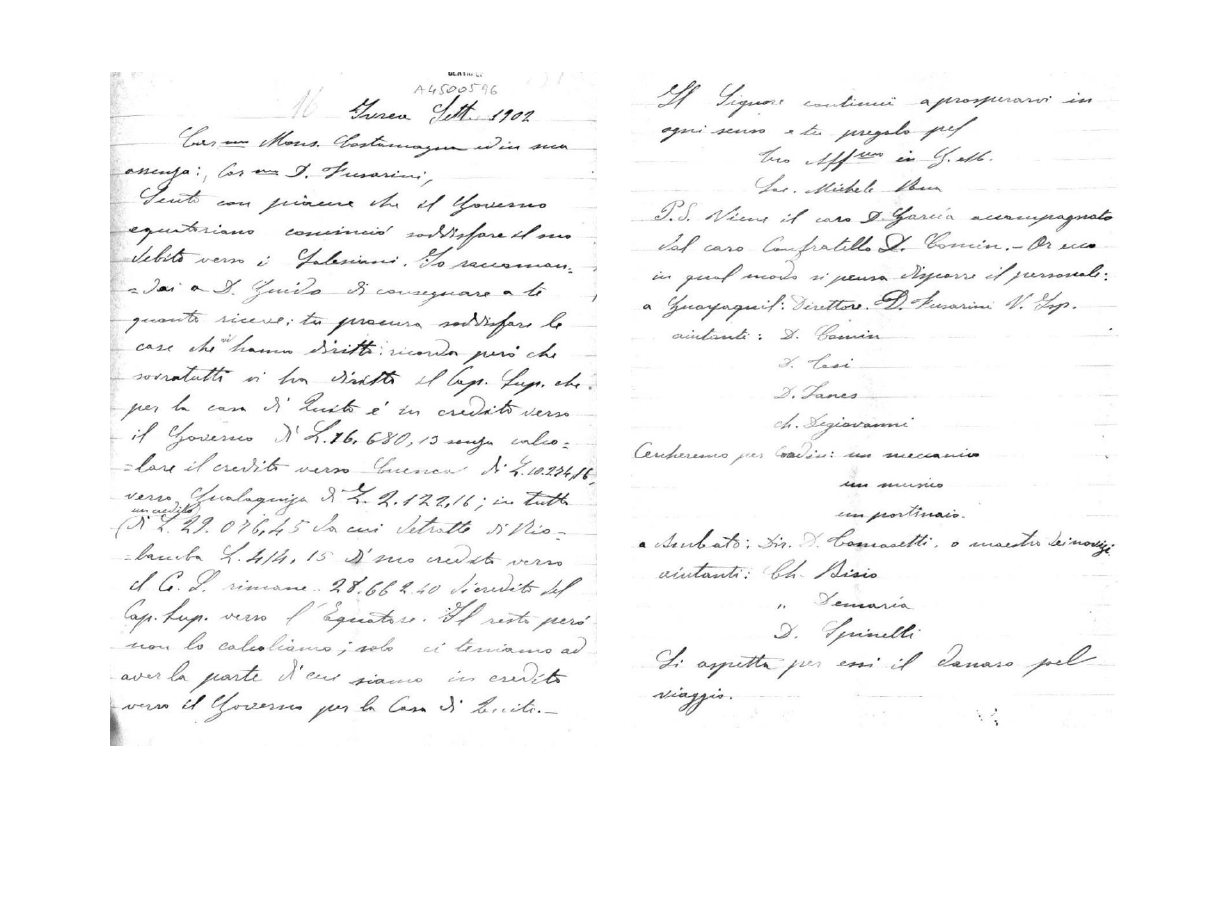 A4500596
16
Ivrea Sett. 1902
Car mo Mons. Costamagna ed in sua
assenza:, Car mo D. Fusarini,
Sento con piacere che il Governo
equatoriano cominciò soddisfare il suo
debito verso i Salesiani. Io raccoman=
=dai a D. Guido di consegnare a te
quanto riceve: tu procura soddisfare le
case che vi hanno diritto: ricorda però che
sovratutti vi ha diritto il Cap. Sup. che
per la casa di Quito è in credito verso
il Governo di L. 16,680,13 senza calco=
=lare il credito verso Cuenca di L. 10.274,16
verso Gualaquiza di L. 2.122,16; in tutto
un credito
(di L. 29.076,45 da cui detratte di Rio=
=bamba L. 414,15 di suo credito verso
il C. S. rimane 28.662.40 di credito del
Cap. Sup. verso l'Equatore. Il resto però
non lo calcoliamo; solo ci teniamo ad
aver la parte di cui siamo in credito
verso il Governo per la Casa di Quito.—
Il Signore continui a prosperarvi in
ogni senso e tu pregalo pel
tuo Aff mo in G. eM.
Sac. Michele Rua
P.S. Viene il caro D. Garcia accompagnato
dal caro Confratello D. Comin.— Or ecco
in qual modo si pensa disporre il personale:
a Guayaquil: Direttore. D. Fusarini V. Isp.
aiutanti: D. Comin
D. Casi
D. Fanes
ch. Degiovanni
Cercheremo per Coadiu: un meccanico
un musico
un portinaio.
a Ambato: Dir. D. Comasetti, o maestro dei novizi
aiutanti: Ch. Bisio
" Demaria
D. Spinelli
Si aspetta per essi il danaro pel
viaggio.